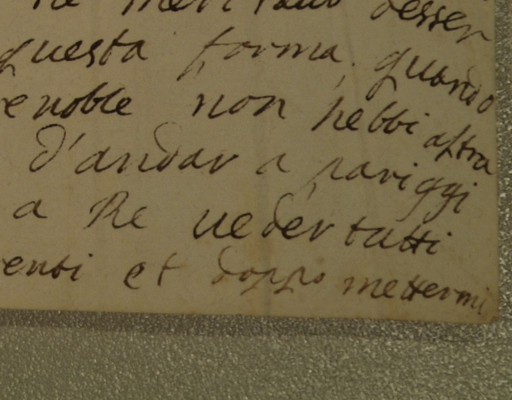 Re meritano d'esser
questa forma, quando
enoble non hebbi altra
d'andar a pariggi
a Re ueder tutti
enti et doppo mettermi